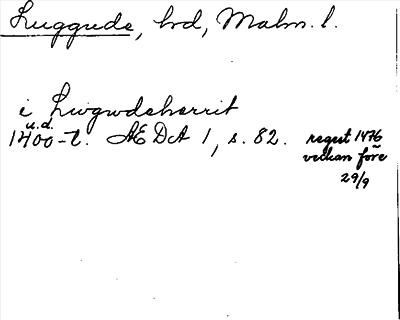 Luggude, hd, Malm. l.
i Lwgwdeherrit
u.d.
1400-t. ÆDA 1, s. 82. regest 1476
veckan före
29/9